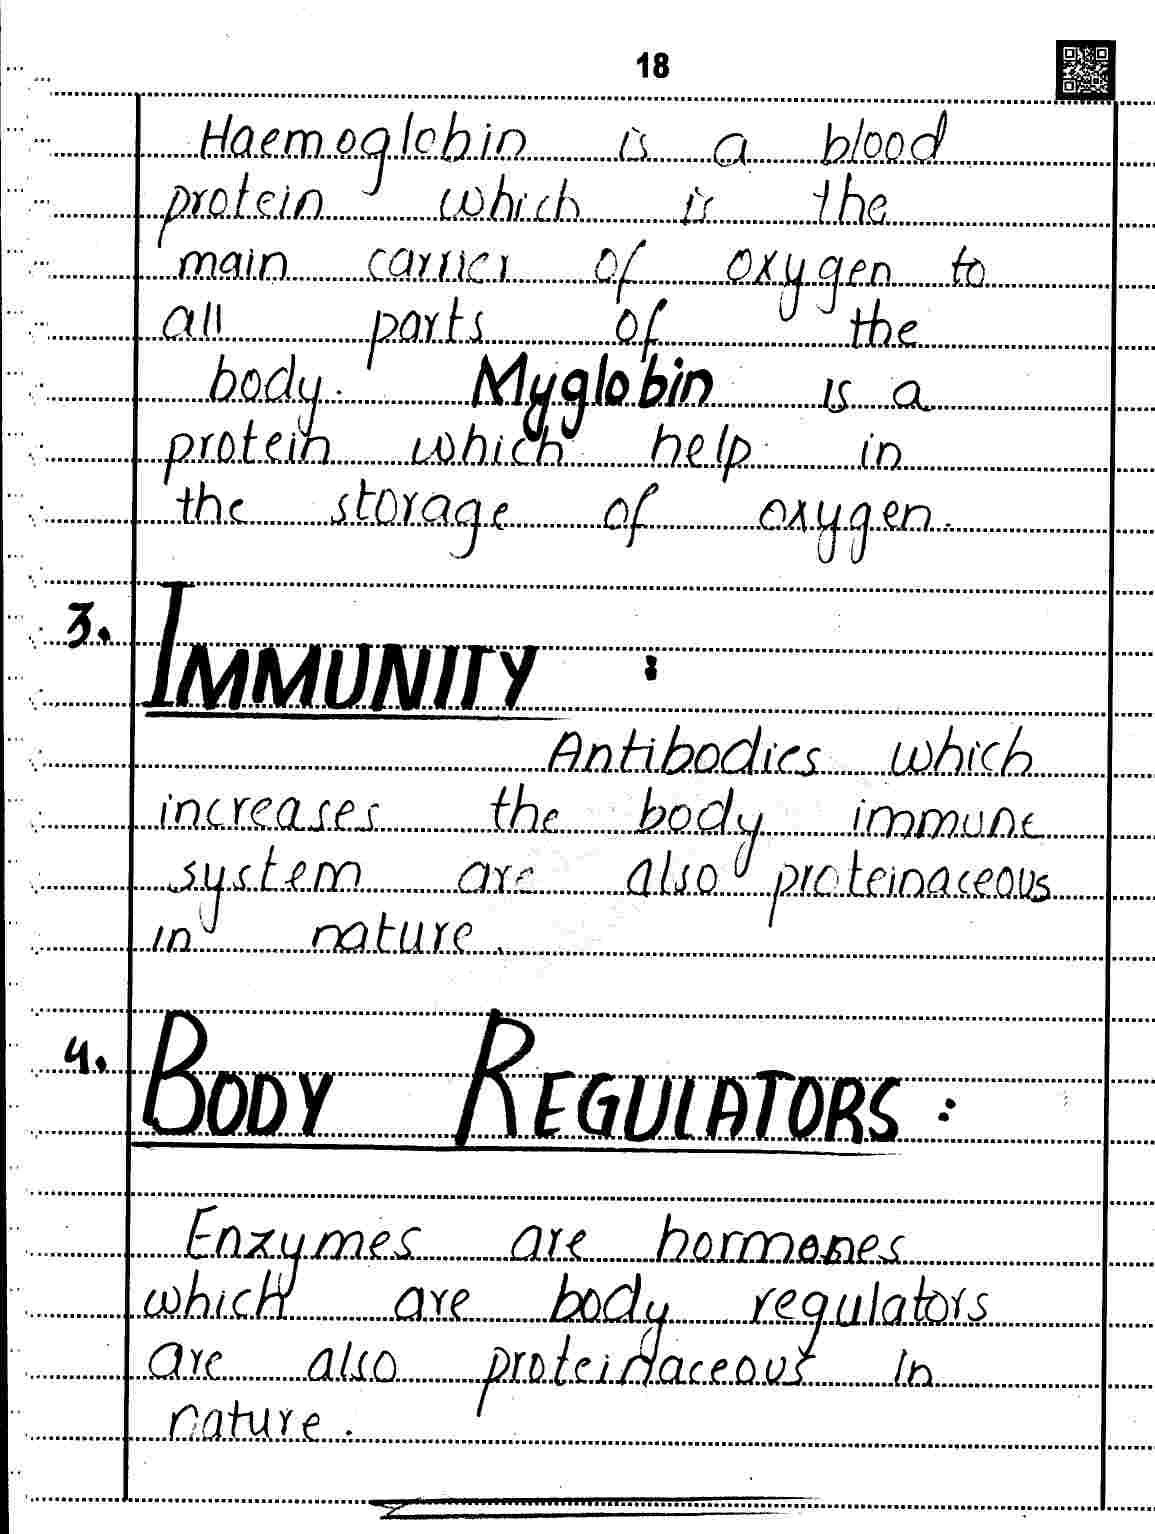 18
Haemoglobin is a blood
protein which is the
main carrier of oxygen to
all parts of the
body. Myglobin is a
protein which help in
the storage of oxygen.
3. IMMUNITY :
Antibodies which
increases the body immune
system are also proteinaceous
in nature.
4. BODY REGULATORS :
Enzymes are hormones
which are body regulators
are also proteinaceous in
nature.